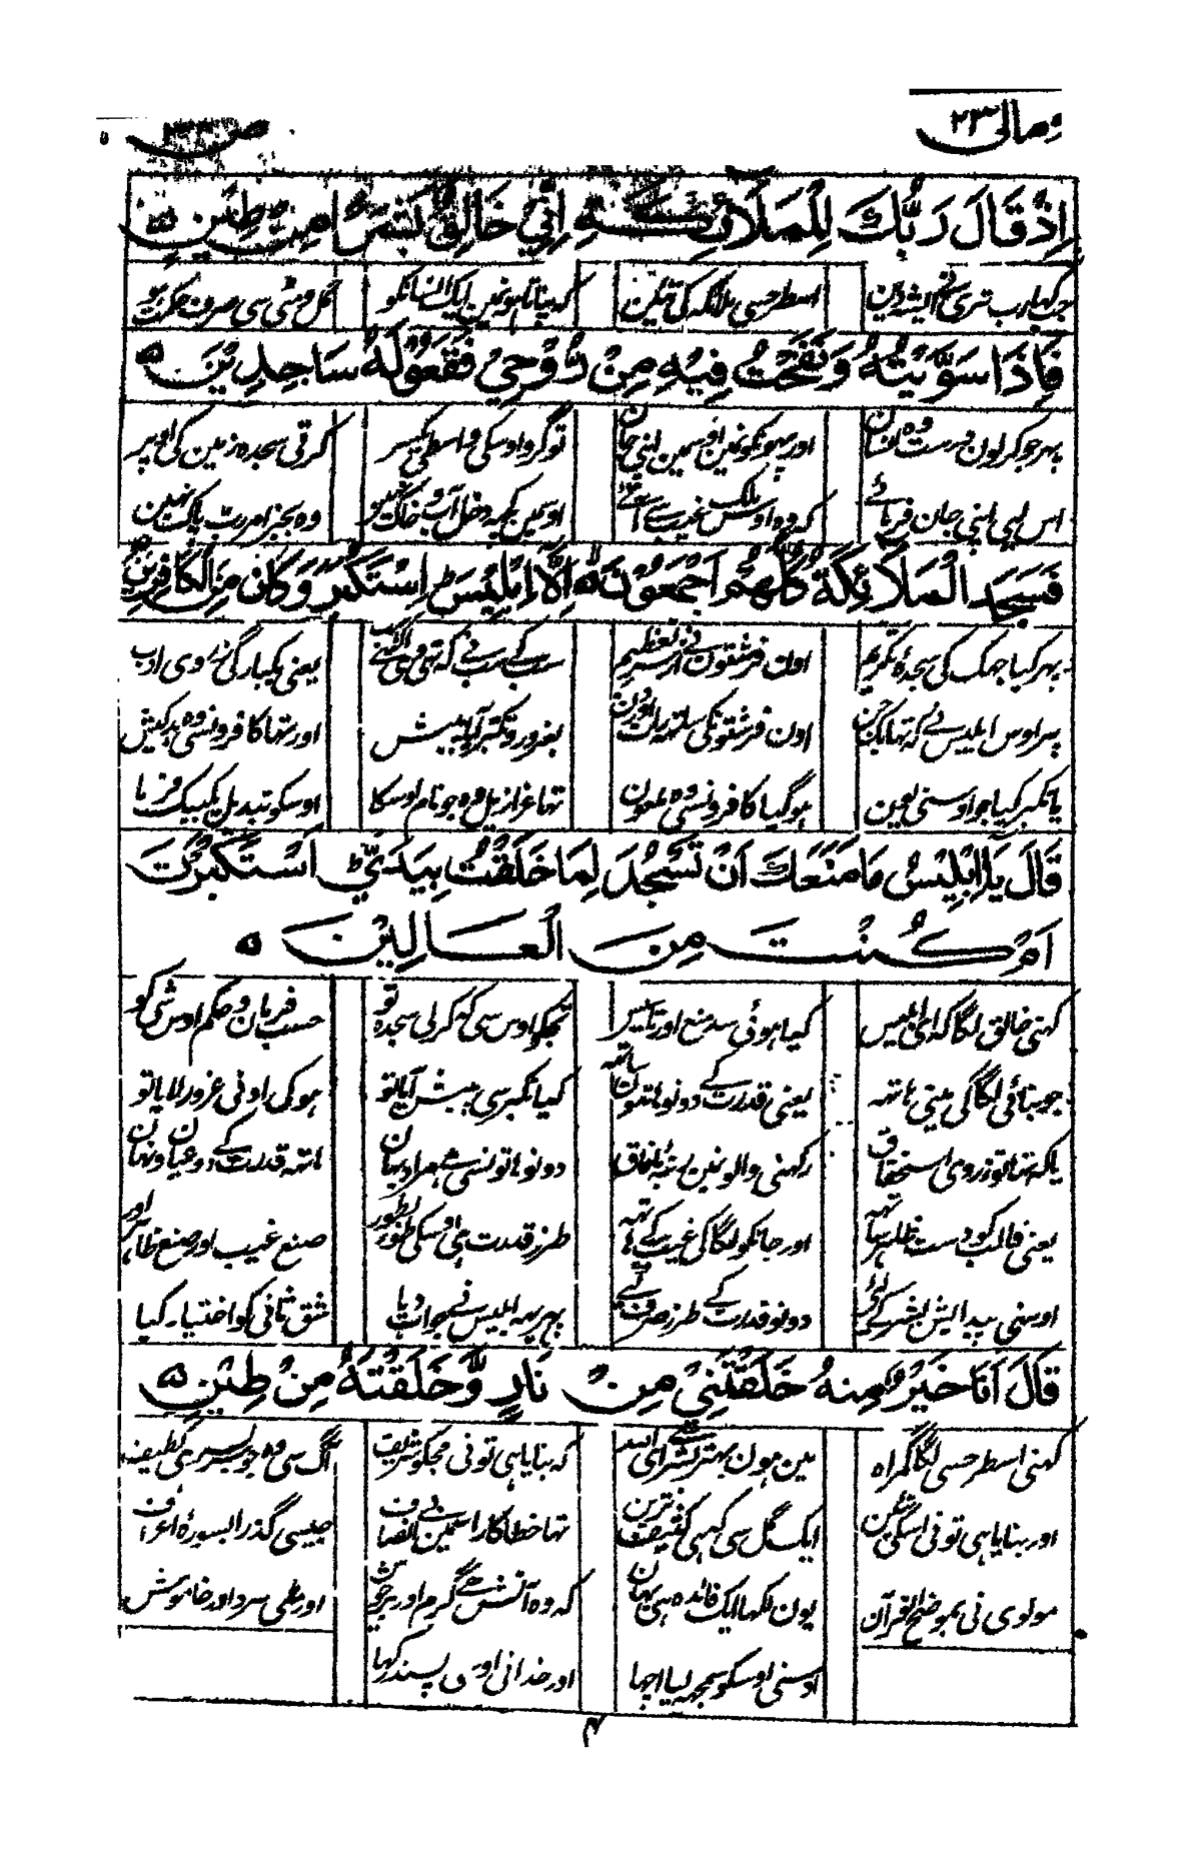 ومالی ۲۳
ص ۳۸
اِذْ قَالَ رَبُّكَ لِلْمَلَائِكَةِ اِنِّي خَالِقٌ بَشَرًا مِنْ طِينٍ ه
جب کہا رب تری نے ایشہ دین اسطرحسی ملائکہ کی تئین کہ بناتا ہونمین ایک انسانکو گل و مٹی سی صرف
فَاِذَا سَوَّيْتُهُ وَنَفَخْتُ فِيْهِ مِنْ رُّوْحِيْ فَقَعُوْا لَهُ سَاجِدِيْنَ ه
پہر جو کرلون درست وہ انسان اور پہونکونمین اوسمین اپنی جان تو گرو اوسکی واسطی یکسر کرتی سجدہ زمین کی اوپر
اس لیی اپنی جان فرمائے کہ وہ اوس ملک غیب سے آئے اوسمین کچہ دخل آب و خاک نہین وہ بجز امر رب پاک نہین
فَسَجَدَ الْمَلَائِكَةُ كُلُّهُمْ اَجْمَعُوْنَ اِلَّا اِبْلِيْسَ اِسْتَكْبَرَ وَكَانَ مِنَ الْكَافِرِيْنَ
پہر کیا جہک کی سجدۂ تکریم اون فرشتون نے از سر تعظیم سب کے سب نے کہ تہی وہ یعنی یکبارگی ز روی ادب
پر اوس ابلیس نے کہ تہا اون فرشتونکی ساتہہ بغرور و تکبر آیا پیش اور تہا کافرونسی وہ بدکیش
یا تکبر کیا جو اوسنی لعین ہوگیا کافرونسی وہ ملعون تہا عزازیل وہ جو نام اوسکا اوسکو تبدیل یکبیک فرما
قَالَ يَا اِبْلِيْسُ مَا مَنَعَكَ اَنْ تَسْجُدَ لِمَا خَلَقْتُ بِيَدَيَّ اَسْتَكْبَرْتَ
اَمْ كُنْتَ مِنَ الْعَالِيْنَ ه
کہنی خالق لگا کہ ای ابلیس کیا ہوئی سد منع اور تجکو اوس سی کہ کرلی سجدہ تو حسب فرمان و حکم اوس شی کو
جو بنائی لگا کی مینی ہاتہہ یعنی قدرت کے دونو ہاتہون ساتہہ کیا تکبر سی پیش آیا تو ہو کی اونی غرور لایا تو
یا کہ تہا تو ز روی استحقاق رکہنی والونمین دونو ہاتونسی ہے مراد یہان ہاتہہ قدرت کے دو عیان و نہان
یعنی قالب کو دست ظاہر ساتہہ اور جانکو لگا کی غیب کے ہاتہہ طرز قدرت ہی اوسکی صنع غیب اور صنع ظاہر اور
اوسنی پیدایش بشر کے لئے دونو قدرت کے طرز صرف کئے پہر یہہ ابلیس نے جواب دیا شق ثانی کو اختیار کیا
قَالَ اَنَا خَيْرٌ مِنْهُ خَلَقْتَنِيْ مِنْ نَارٍ وَّخَلَقْتَهُ مِنْ طِيْنٍ ه
کہنی اسطرحسی لگا گمراہ مین ہون بہتر بشر سے ای اللہ کہ بنایا ہی تونی مجکو شریف آگ سی وہ جو ہے لطیف
اور بنایا ہی تونی اسکی تئین ایک گل سی کہ ہی کثیف ترین تہا خطاکار اسمین بے انصاف جیسی گذرا بسورۂ اعراف
مولوی نی بموضح القرآن یون لکہا ایک فائدہ ہی یہان کہ وہ آتش ہے گرم اور پرجوش اور مٹی سرد اور خاموش
اوسنی اوسکو سمجہہ لیا اچہا اور خدانی پسند کہا